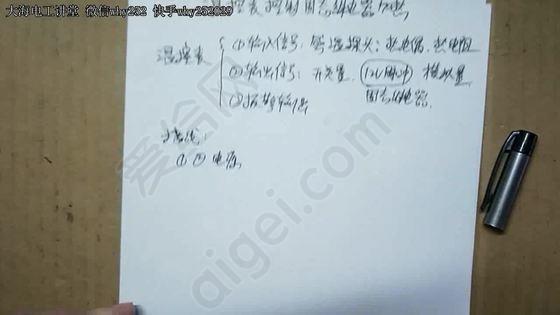 大海电工讲堂 微信why232 快手why232029
温控表控制固态继电器加热
温控表 { ①输入信号: 测温探头: 热电偶, 热电阻
②输出信号: 开关量, 12V脉冲 模拟量
固态继电器
③报警输出
接线:
①②电源
爱给网
aigei.com